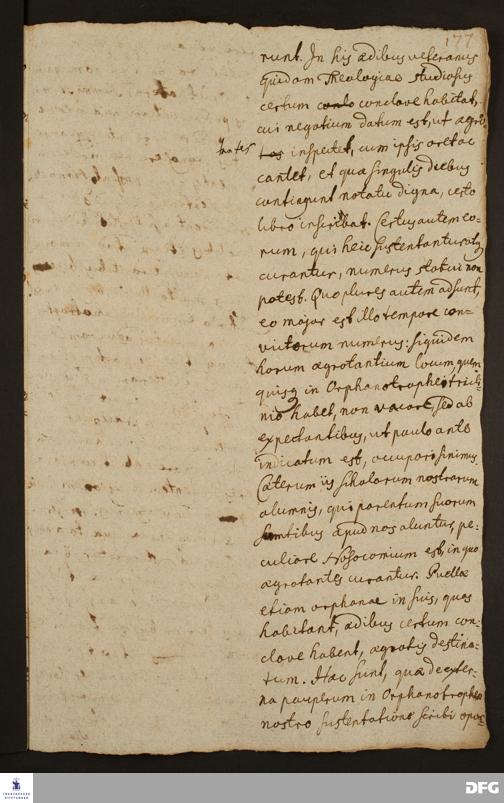 177
runt. In his ædibus veteranus
quidam Theologiae studiosus
certum conclave habitat,
cui negotium datum est, ut ægro
tantes inspectet, cum ipsis oret ac
cantet, et quæ singulis diebus
contingunt notatu digna, certo
libro inscribat. Certus autem eo-
rum, qui heic sustentantur atq
curantur, numerus statui non
potest. Quo plures autem adsunt,
eo major est illo tempore con-
victorum numerus: siquidem
horum ægrotantium locum, quem
quisq in Orphanotrophei tricli-
nio habet, non vacare, sed ab
expectantibus, ut paulo ante
indicatum est, occupari sinimus.
Cæterum iis scholarum nostrarum
alumnis, qui parentum suorum
sumtibus apud nos aluntur, pe-
culiare Nosocomium est, in quo
ægrotantes curantur. Puellæ
etiam orphanae in suis, quas
habitant, ædibus certum con-
clave habent, ægrotis destina-
tum. Hæc sunt, quæ de exter-
na pauperum in Orphanotropheo
nostro sustentatione scribi opus
FRANCKESCHE
STIFTUNGEN
DFG